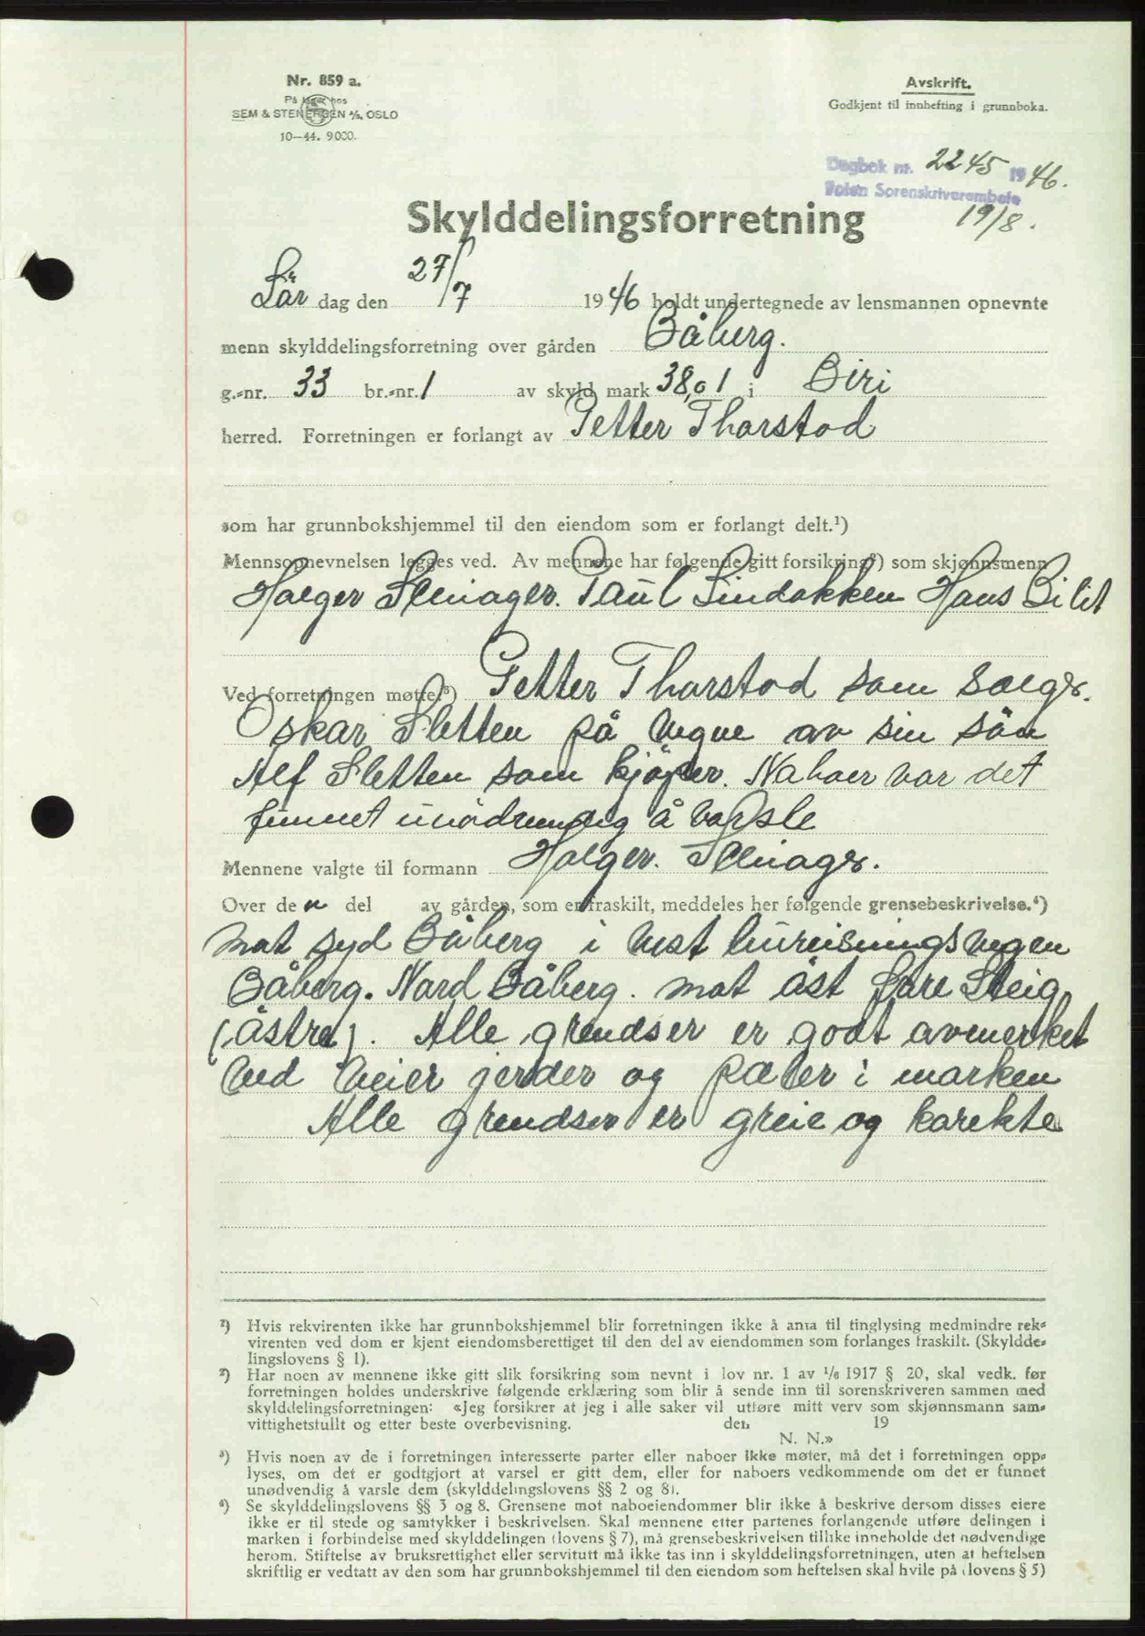 Nr. 859 a.
På lager hos
SEM & STENERSEN A/S, OSLO
10—44. 9000.
Avskrift.
Godkjent til innhefting i grunnboka.
Dagbok nr. 2245 1946.
Toten Sorenskriverembete
19/8.
Skylddelingsforretning
Lör dag den 27/7 1946 holdt undertegnede av lensmannen opnevnte
menn skylddelingsforretning over gården Båberg.
g.-nr. 33 br.-nr. 1 av skyld mark 38,01 i Biri
herred. Forretningen er forlangt av Petter Thorstad
som har grunnbokshjemmel til den eiendom som er forlangt delt.¹)
Mennsopnevnelsen legges ved. Av mennene har følgende gitt forsikring²) som skjønnsmenn
Holger Stenager. Paul Lindokken Hans Bilit
Ved forretningen møtte³) Petter Thorstad som Sælger.
Oskar Sletten på vegne av sin sön
Alf Sletten som kjöper. Naboer var det
funnet unödvendig å varsle
Mennene valgte til formann Holger. Stenager.
Over den del av gården, som er fraskilt, meddeles her følgende grensebeskrivelse.⁴)
mot syd Båberg i vest bureisningsvegen
Båberg. Nord Båberg. mot öst Söre Steig
(östre). Alle grendser er godt avmerket
ved veier gjerder og pæler i marken
Alle grendser er greie og korekte
¹) Hvis rekvirenten ikke har grunnbokshjemmel blir forretningen ikke å anta til tinglysing medmindre rek-
virenten ved dom er kjent eiendomsberettiget til den del av eiendommen som forlanges fraskilt. (Skyldde-
lingslovens § 1).
²) Har noen av mennene ikke gitt slik forsikring som nevnt i lov nr. 1 av 1/6 1917 § 20, skal vedk. før
forretningen holdes underskrive følgende erklæring som blir å sende inn til sorenskriveren sammen med
skylddelingsforretningen: «Jeg forsikrer at jeg i alle saker vil utføre mitt verv som skjønnsmann sam-
vittighetsfullt og etter beste overbevisning. den 19
N. N.»
³) Hvis noen av de i forretningen interesserte parter eller naboer ikke møter, må det i forretningen opp-
lyses, om det er godtgjort at varsel er gitt dem, eller for naboers vedkommende om det er funnet
unødvendig å varsle dem (skylddelingslovens §§ 2 og 8).
⁴) Se skylddelingslovens §§ 3 og 8. Grensene mot naboeiendommer blir ikke å beskrive dersom disses eiere
ikke er til stede og samtykker i beskrivelsen. Skal mennene etter partenes forlangende utføre delingen i
marken i forbindelse med skylddelingen (lovens § 7), må grensebeskrivelsen tillike inneholde det nødvendige
herom. Stiftelse av bruksrettighet eller servitutt må ikke tas inn i skylddelingsforretningen, uten at heftelsen
skriftlig er vedtatt av den som har grunnbokshjemmel til den eiendom som heftelsen skal hvile på (lovens § 5)